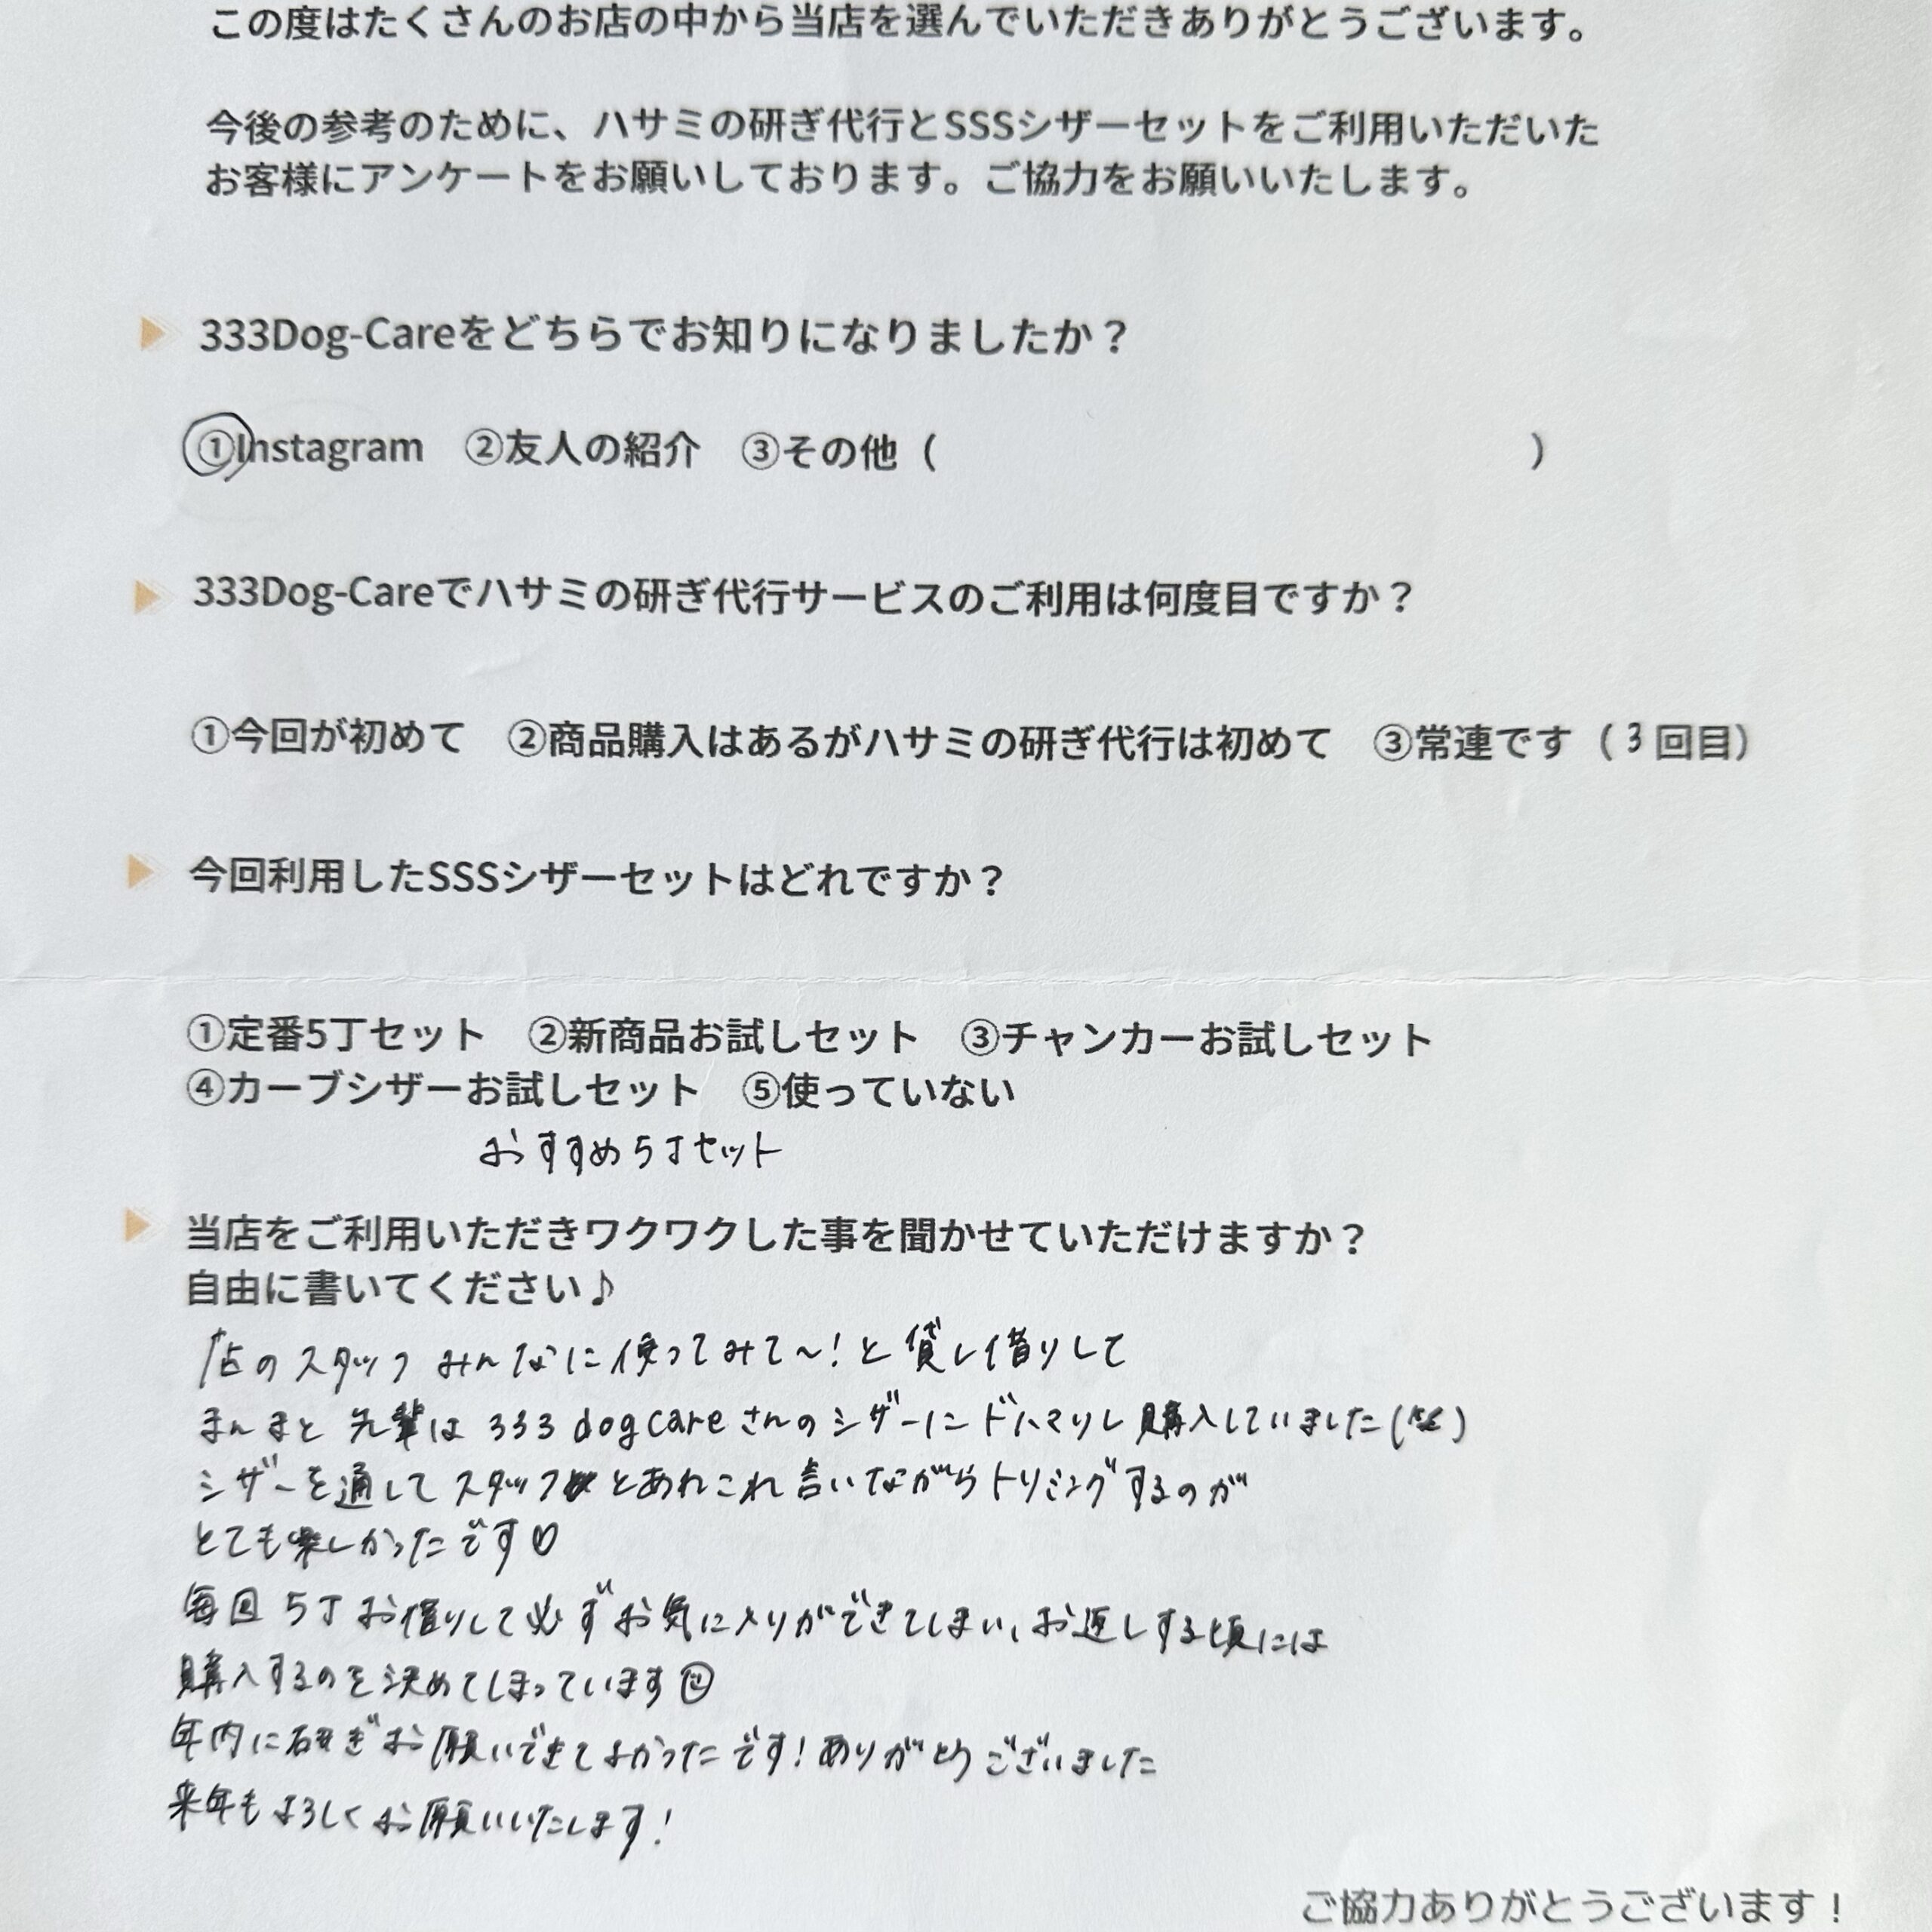 この度はたくさんのお店の中から当店を選んでいただきありがとうございます。
今後の参考のために、ハサミの研ぎ代行とSSSシザーセットをご利用いただいた
お客様にアンケートをお願いしております。ご協力をお願いいたします。
333Dog-Careをどちらでお知りになりましたか？
①Instagram ②友人の紹介 ③その他（ ）
333Dog-Careでハサミの研ぎ代行サービスのご利用は何度目ですか？
①今回が初めて ②商品購入はあるがハサミの研ぎ代行は初めて ③常連です（3回目）
今回利用したSSSシザーセットはどれですか？
①定番5丁セット ②新商品お試しセット ③チャンカーお試しセット
④カーブシザーお試しセット ⑤使っていない
おすすめ5丁セット
当店をご利用いただきワクワクした事を聞かせていただけますか？
自由に書いてください♪
店のスタッフみんなに使ってみて〜！と貸し借りして
まんまと先輩は333dogcareさんのシザーにドハマりし購入していました(笑)
シザーを通してスタッフとあれこれ言いながらトリミングするのが
とても楽しかったです♡
毎回5丁お借りして必ずお気に入りができてしまい、お返しする頃には
購入するのを決めてしまっています☺
年内に研ぎお願いできてよかったです！ありがとうございました
来年もよろしくお願いいたします！
ご協力ありがとうございます！